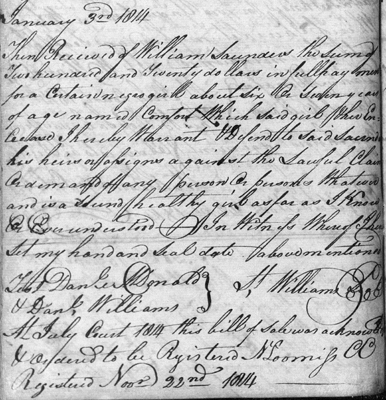 January 3rd 1814
Then Received of William Saunders the sum of
Two hundred and Twenty dollars in full payment
for a Certain negro girl about six or Seven years
of age named Comfort Which said girl
I hereby Warrant & Defend to said Saunders
his heirs or asigns against the Lawful Claim
or demand of any person or persons whatsoever
and is a sound healthy girl as far as I know
or Ever understood In Witness Whereof I have
set my hand and seal date above mentioned
Test Danl McDonald St Williams Seal
& Danl Williams
At July Court 1814 this bill of Sale was acknowd
& ordered to be Registered N Loomiss CC
Registered Novr 22nd 1814